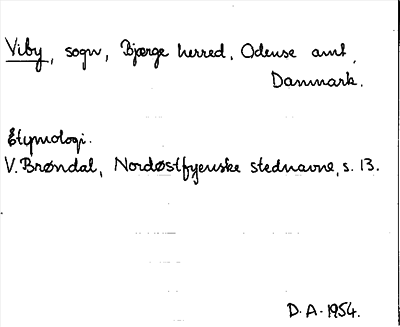 Viby, sogn, Bjærge herred, Odense amt,
Danmark.
Etymologi.
V. Brøndal, Nordøstfyenske stednavne, s. 13.
D. A. 1954.